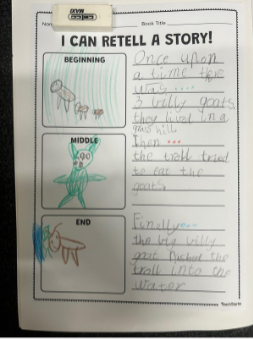 Name
Book Title
I CAN RETELL A STORY!
BEGINNING
Once upon
a time ther
was ....
3 billy goats
they lived in a
grass hill.
MIDDLE
then ...
the troll tried
to eat the
goats
END
Finally...
the big billy
goat the
troll into the
water